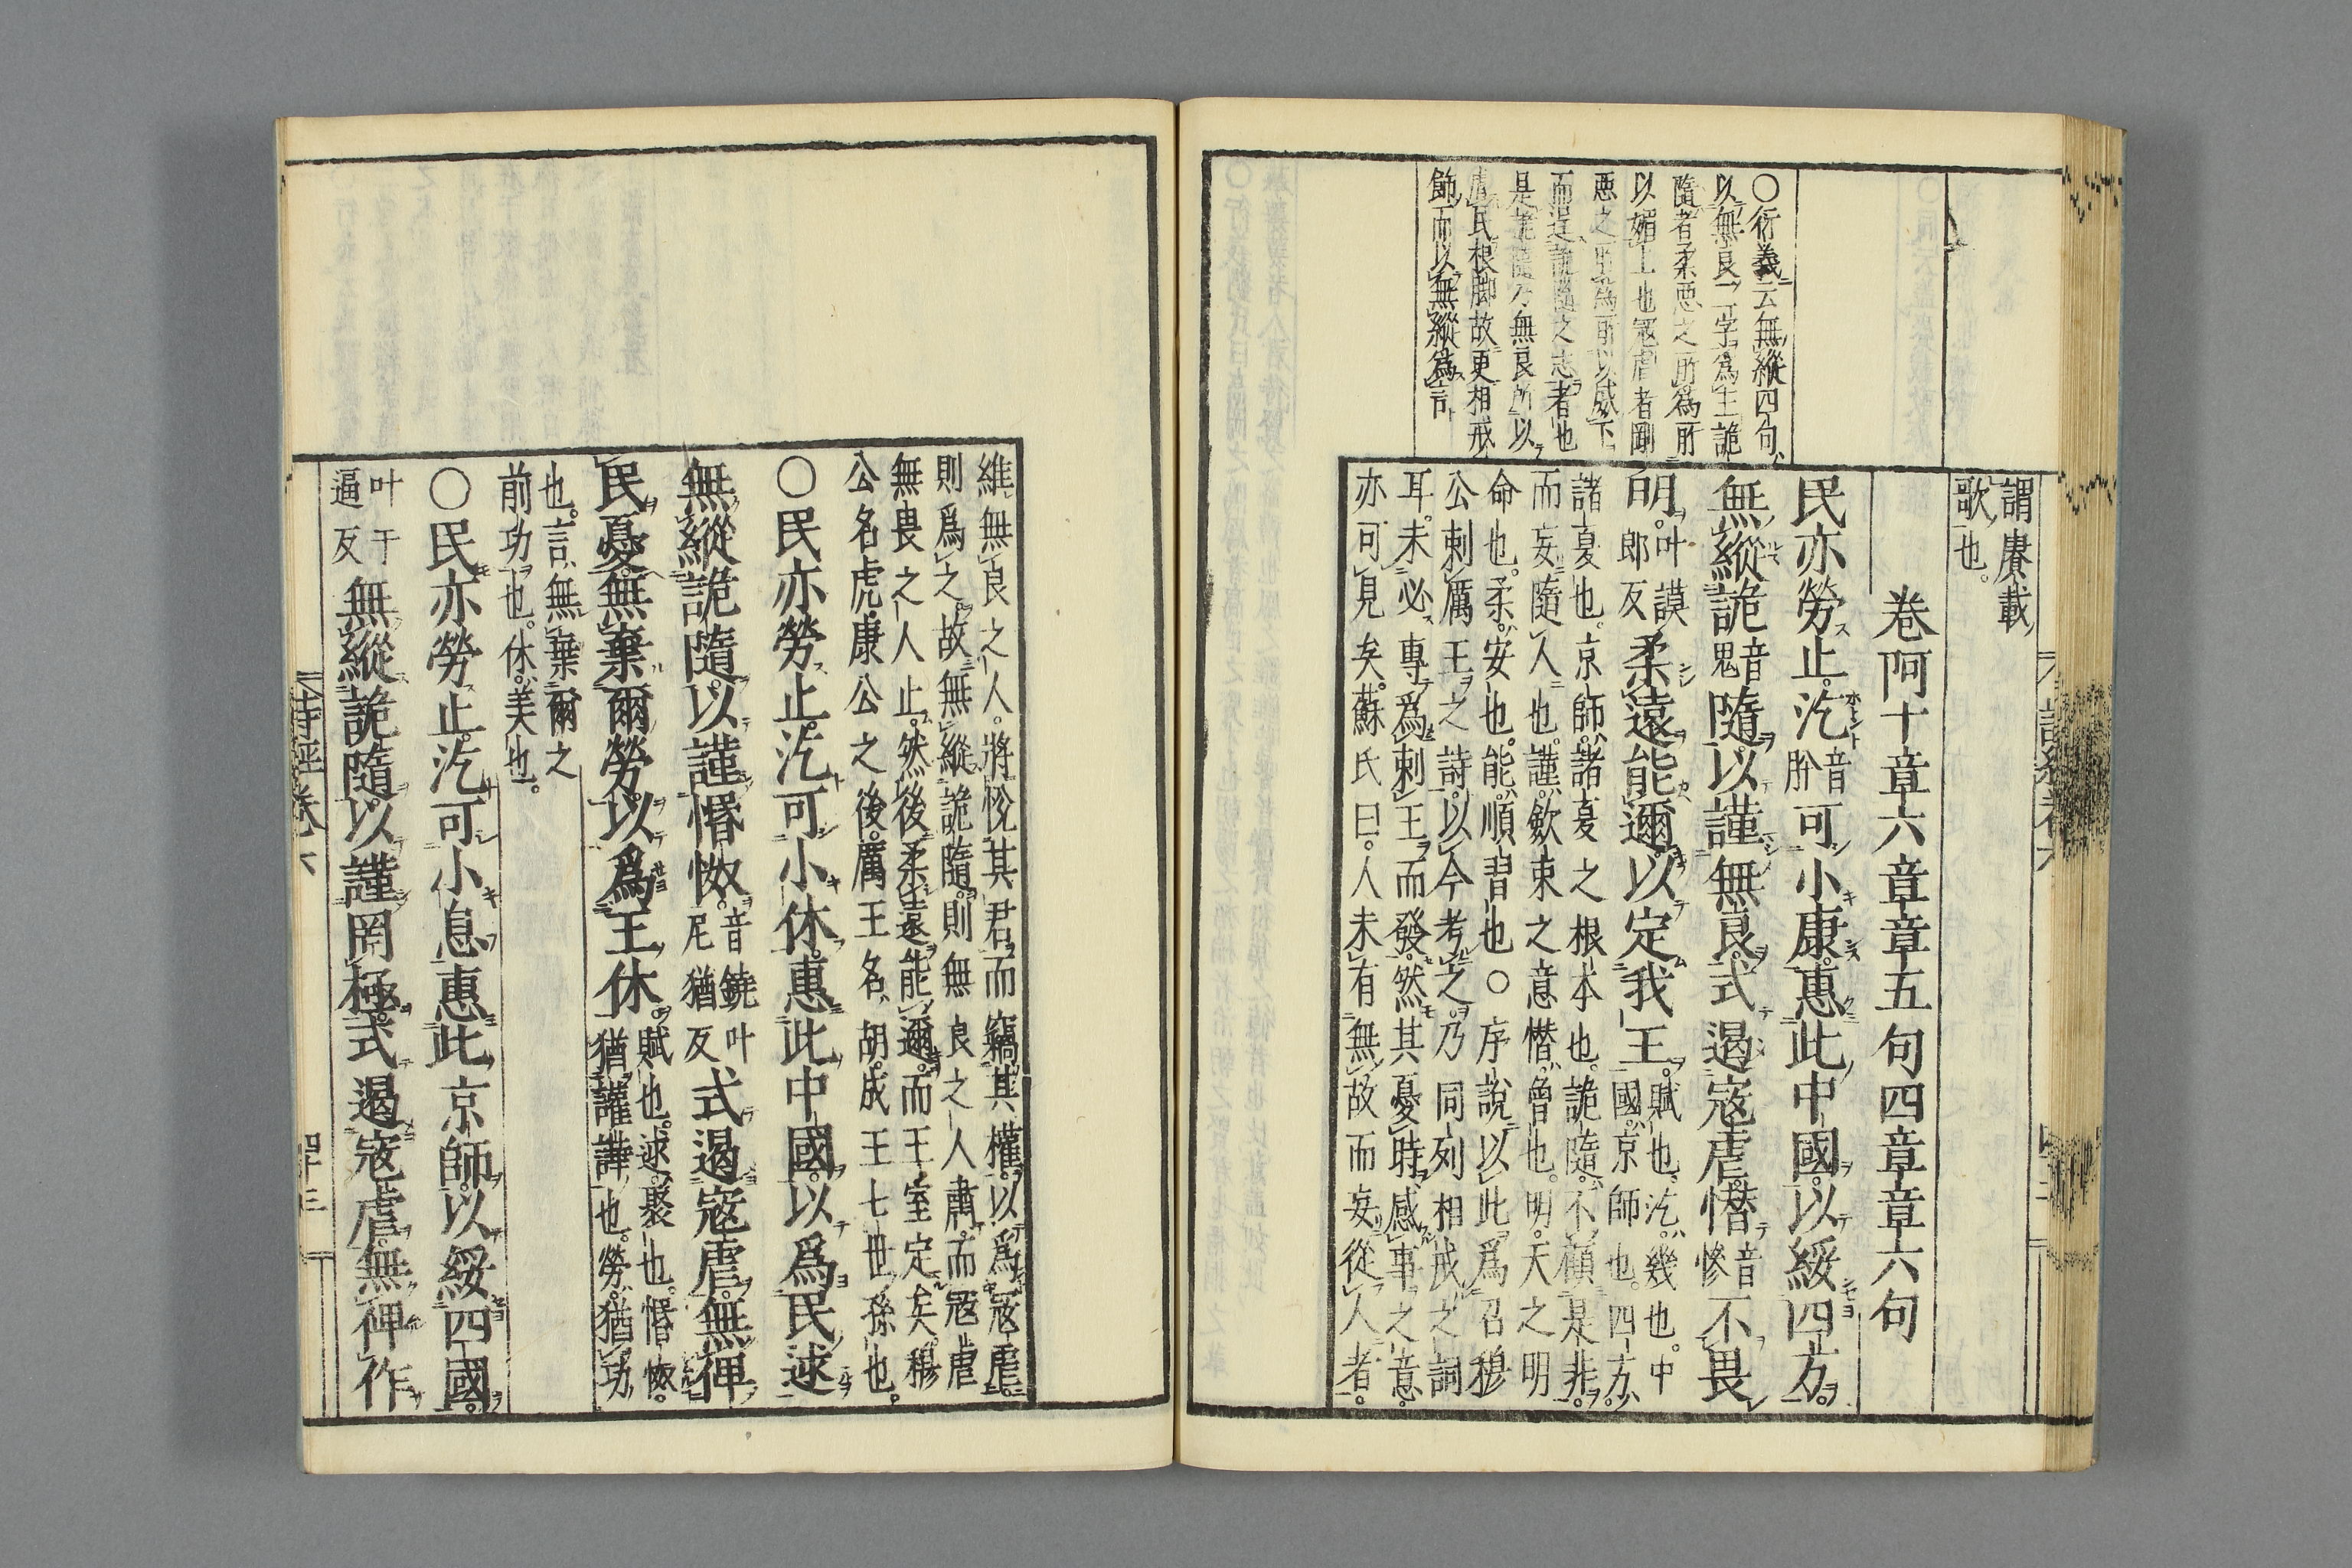 謂賡載
歌也。
卷阿十章六章章五句四章章六句
民亦勞止。汔音肸可小康。惠此中國。以綏四方。
無縱詭音鬼隨。以謹無良。式遏寇虐。憯音慘不畏
明。叶謨郎反柔遠能邇。以定我王。賦也。汔。幾也。中國。京師也。四方。
諸夏也。京師。諸夏之根本也。詭隨。不顧是非。
而妄隨人也。謹。斂束之意憯。曾也。明。天之明
命也。柔。安也。能。順習也○序說以此爲召穆
公刺厲王之詩。以今考之。乃同列相戒之詞
耳。未必專爲刺王而發。然其憂時感事之意
亦可見矣。蘇氏曰。人未有無故而妄從人者。
○衍義云無縱四句
以無良二字爲主詭
隨者柔惡之所爲所
以媚上也寇虐者剛
惡之所爲所以威下
而逞詭隨之志者也
是詭隨乃無良所以
虐民根脚故更相戒
飭而以無縱爲言
維無良之人。將悅其君而竊其權。以爲寇虐。
則爲之。故無縱詭隨。則無良之人肅。而寇虐
無畏之人止。然後柔遠能邇。而王室定矣。穆
公名虎。康公之後。厲王名胡。成王七世孫也。
○民亦勞止。汔可小休。惠此中國。以爲民逑。
無縱詭隨。以謹惛怓。音鐃叶尼猶反式遏寇虐。無俾
民憂。無棄爾勞。以爲王休。賦也。逑。聚也。惛怓。猶讙譁也。勞。猶功
也。言無棄爾之
前功也。休。美也。
○民亦勞止。汔可小息。惠此京師。以綏四國。
叶于逼反無縱詭隨。以謹罔極。式遏寇虐。無俾作
詩經卷六
四十三